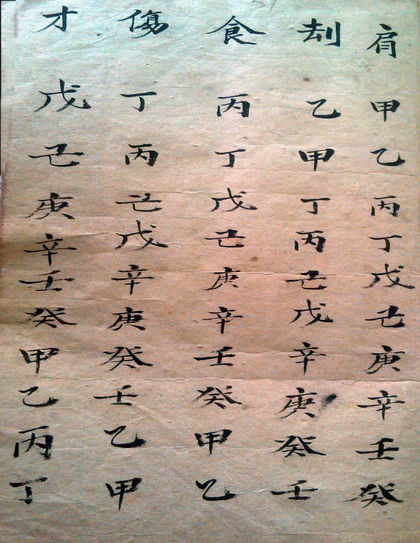 肩甲乙丙丁戊己庚辛壬癸
刦乙甲丁丙己戊辛庚癸壬
食丙丁戊己庚辛壬癸甲乙
傷丁丙己戊辛庚癸壬乙甲
才戊己庚辛壬癸甲乙丙丁